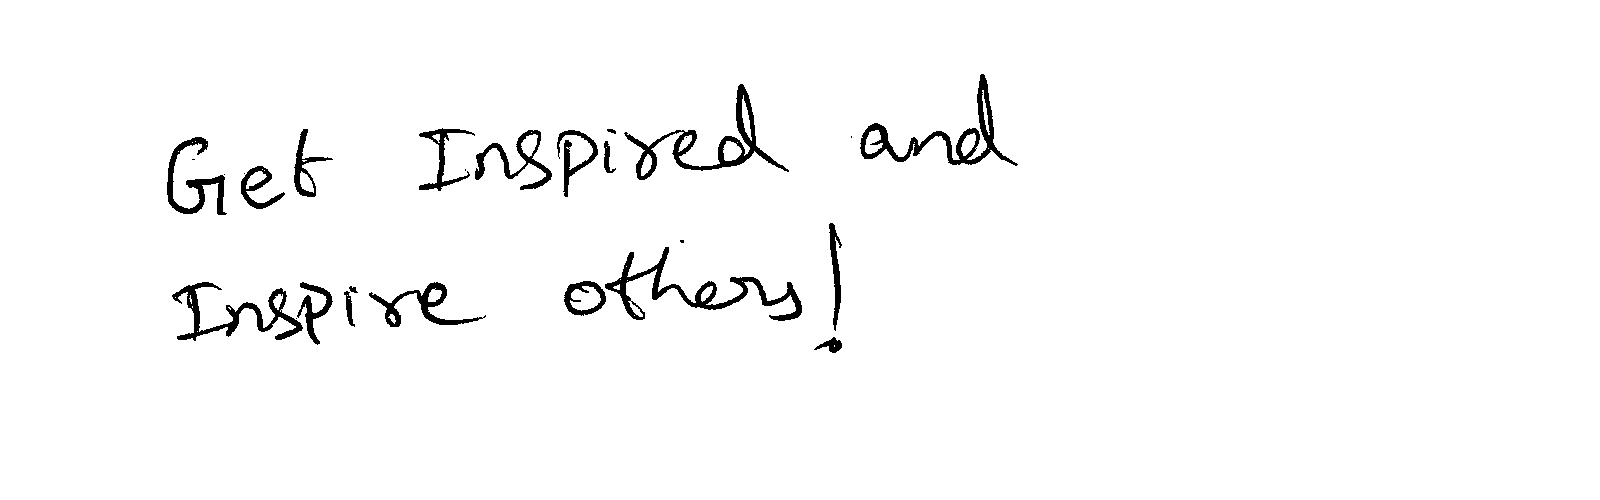 Get Inspired and
Inspire others!